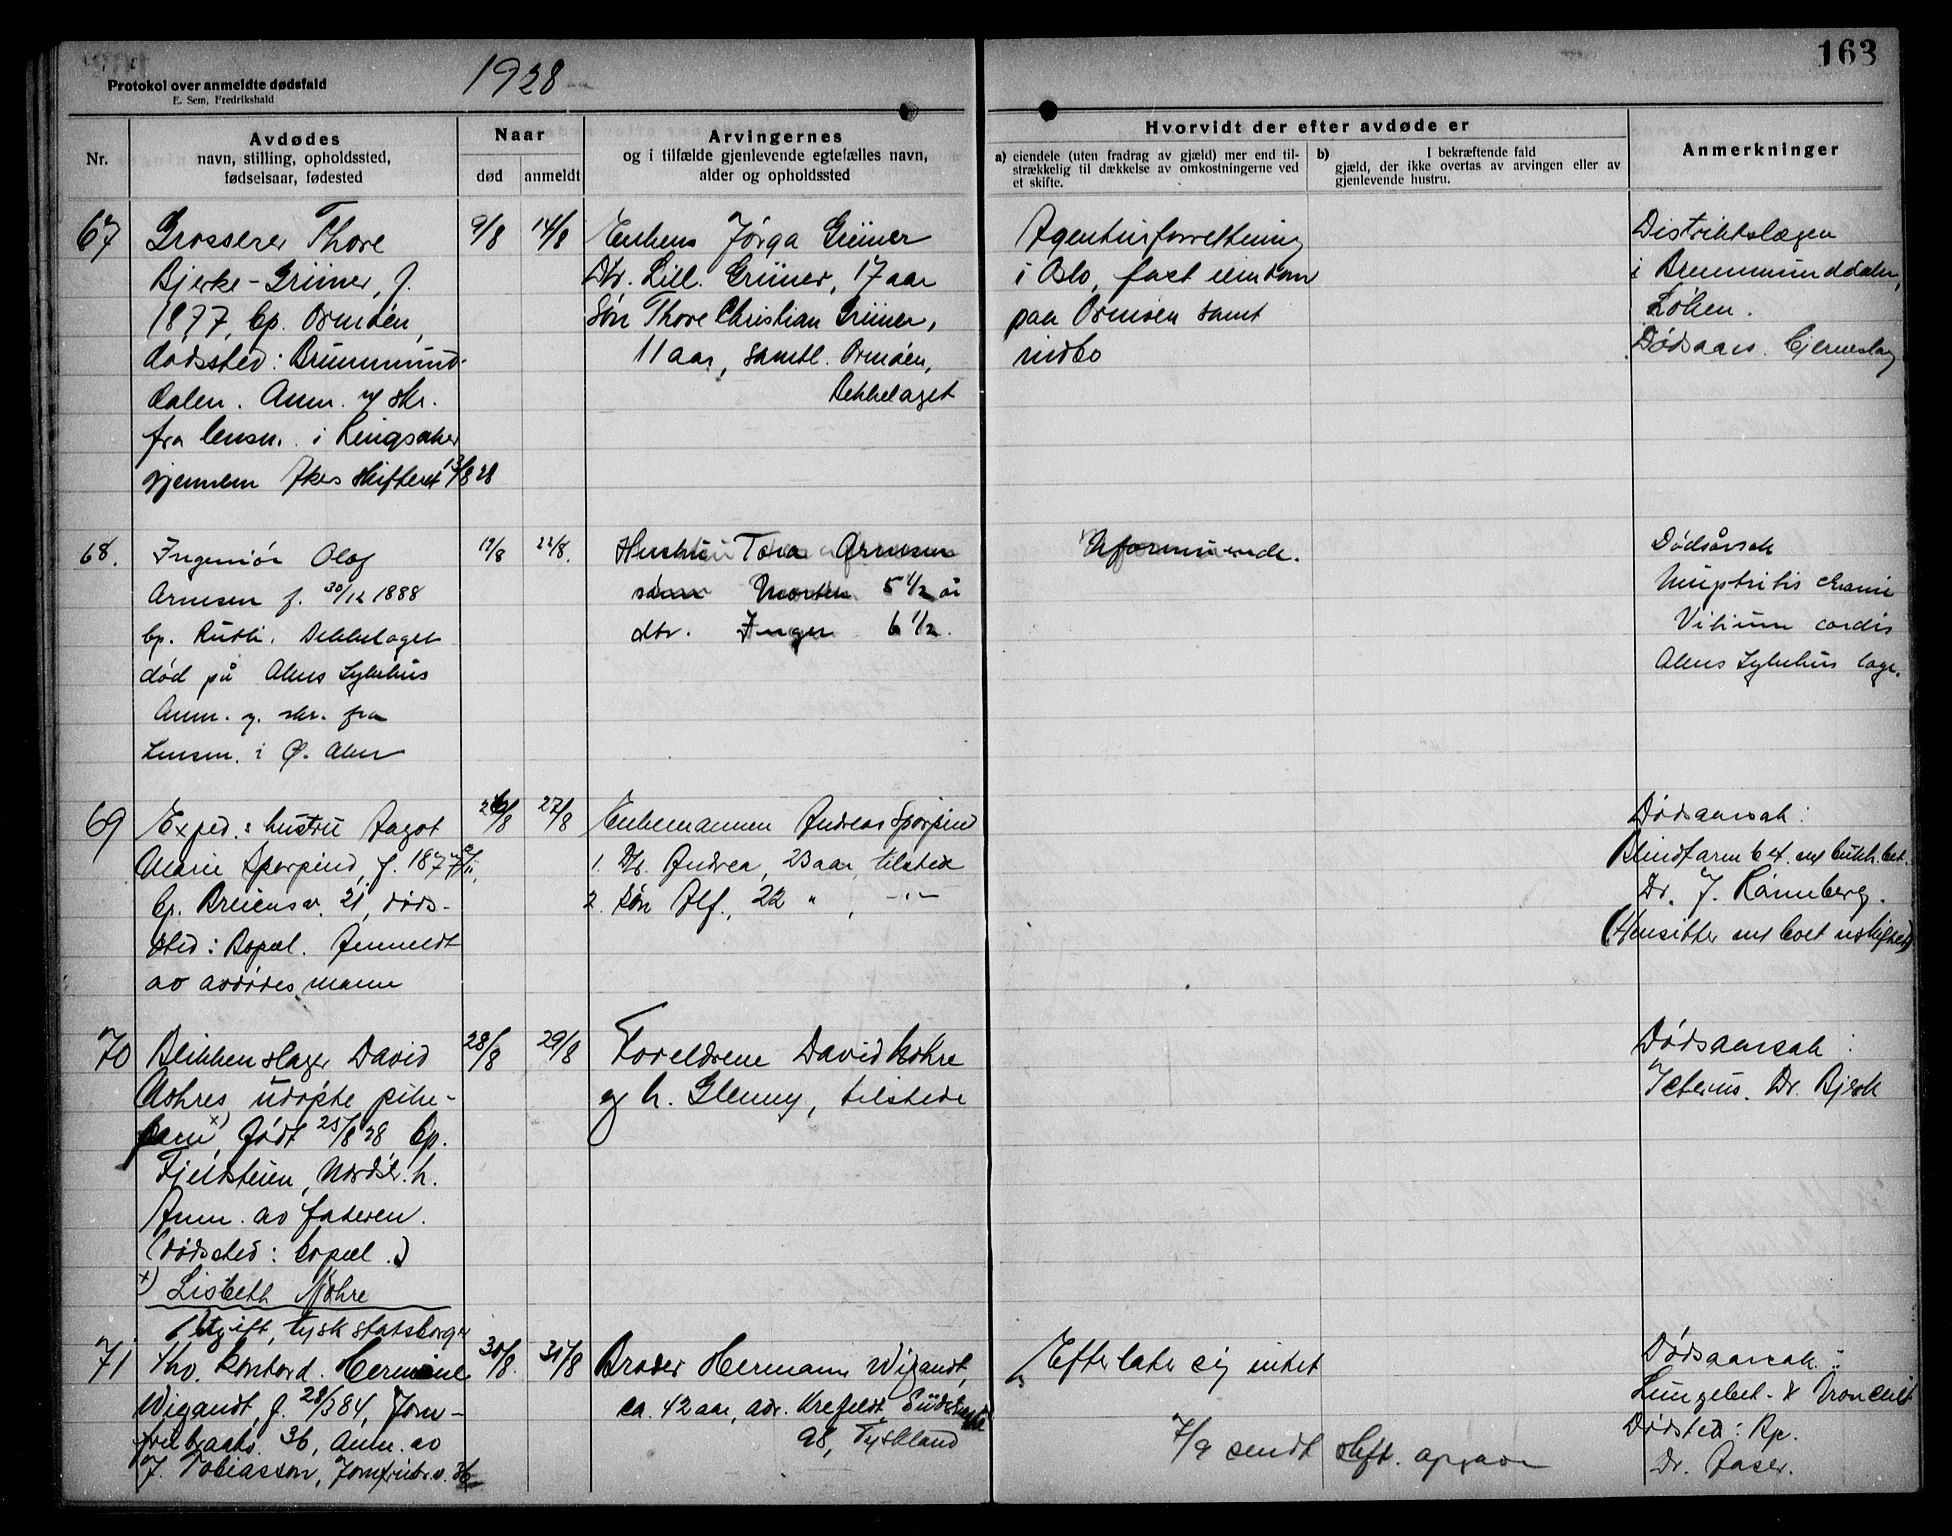 163
Protokol over anmeldte dødsfald
E. Sem, Fredrikshald
1928
Nr.
Avdødes
navn, stilling, opholdssted,
fødselsaar, fødested
Naar
død
anmeldt
Arvingernes
og i tilfælde gjenlevende egtefælles navn,
alder og opholdssted
Hvorvidt der efter avdøde er
a) eiendele (uten fradrag av gjæld) mer end til-
strækkelig til dækkelse av omkostningerne ved
et skifte.
b) I bekræftende fald
gjæld, der ikke overtas av arvingen eller av
gjenlevende hustru.
Anmerkninger
67
Grosserer Thore
Bjerke-Grüner, f.
1877, bp. Ormøen,
dødssted: Brummund-
dalen. Anm. v/ skr.
fra lensm. i Ringsaker
gjennem Akes skifteret 13/8 28
9/8
14/8
Enkens Jørga Grüner
Dtr. Lill. Grüner, 17 aar
Søn Thore Christian Grüner,
11 aar, samtl. Ormøen,
Bekkelaget
Agenturforretning
i Oslo, fast eiendom
paa Ormøen samt
indbo
Distriktslægen
i Brummunddalen,
Løken.
Dødsaars. Hjerneslag
68.
Ingeniør Olaf
Arnesen f. 30/12 1888
bp. Rustli. Bekkelaget
død på Akers Sykehus
Anm. v. skr. fra
Lensm. i Ø. Aker
19/8
22/8.
Hustru Tora Arnesen
sønn Morten 5 1/2 år
dtr. Inger 6 1/2.
Uformuende.
Dødsårsak
Vitium cordis
Akers Sykehus læge.
69
Exped.s hustru Jagot
Marie Sporpind, f. 1877
bp. Breiensv. 21, døds-
sted: Bopæl. Anmeldt
av avdødes mann
26/8
27/8
Enkemannen Andreas Sporpind
1. Dtr. Andrea, 23 aar, tilstede
2. Søn Alf., 22 " , -"-
Dødsaarsak:
Blindtarmbet. m/ bukh.bet.
Dr. J. Rønneberg.
(Hensitter m/ boet uskiftet)
70
Blikkenslager David
Nohres udøpte pike-
barn x), født 25/8 28 bp.
Fjeldsteien, Nordstr. h.
Anm. av faderen.
(Dødssted: bopæl.)
x) Lisbeth Nohre
28/8
29/8
Foreldrene David Nohre
og h. Glenny, tilstede
Dødsaarsak:
Icterus. Dr. Bjerk
71
Ugift, tysk statsborger
fhv. kontord. Hermine
Wigandt, f. 28/3 84, Jom-
frubraatv. 36, Anm. av
J. Tobiasson, Jomfrubr.v. 36
30/8.
31/8
Broder Hermann Wigandt,
ca. 42 aar, adr. Krefeldt,
98, Tyskland
Efterlater sig intet
7/9 sendt skift. opgave
Dødsaarsak:
Lungebet. & Bronchit
Dødsted: Bp.
Dr. Faser.